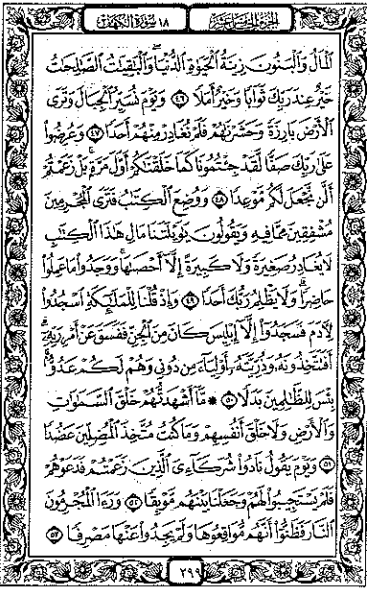 الجزء الخامس عشر ١٨ سورة الكهف
ٱلْمَالُ وَٱلْبَنُونَ زِينَةُ ٱلْحَيَوٰةِ ٱلدُّنْيَا وَٱلْبَٰقِيَٰتُ ٱلصَّٰلِحَٰتُ
خَيْرٌ عِندَ رَبِّكَ ثَوَابًا وَخَيْرٌ أَمَلًا ٤٦ وَيَوْمَ نُسَيِّرُ ٱلْجِبَالَ وَتَرَى
ٱلْأَرْضَ بَارِزَةً وَحَشَرْنَٰهُمْ فَلَمْ نُغَادِرْ مِنْهُمْ أَحَدًا ٤٧ وَعُرِضُوا۟
عَلَىٰ رَبِّكَ صَفًّا لَّقَدْ جِئْتُمُونَا كَمَا خَلَقْنَٰكُمْ أَوَّلَ مَرَّةٍۭ بَلْ زَعَمْتُمْ
أَلَّن نَّجْعَلَ لَكُم مَّوْعِدًا ٤٨ وَوُضِعَ ٱلْكِتَٰبُ فَتَرَى ٱلْمُجْرِمِينَ
مُشْفِقِينَ مِمَّا فِيهِ وَيَقُولُونَ يَٰوَيْلَتَنَا مَالِ هَٰذَا ٱلْكِتَٰبِ
لَا يُغَادِرُ صَغِيرَةً وَلَا كَبِيرَةً إِلَّآ أَحْصَىٰهَا وَوَجَدُوا۟ مَا عَمِلُوا۟
حَاضِرًا وَلَا يَظْلِمُ رَبُّكَ أَحَدًا ٤٩ وَإِذْ قُلْنَا لِلْمَلَٰٓئِكَةِ ٱسْجُدُوا۟
لِءَادَمَ فَسَجَدُوٓا۟ إِلَّآ إِبْلِيسَ كَانَ مِنَ ٱلْجِنِّ فَفَسَقَ عَنْ أَمْرِ رَبِّهِۦٓ
أَفَتَتَّخِذُونَهُۥ وَذُرِّيَّتَهُۥٓ أَوْلِيَآءَ مِن دُونِى وَهُمْ لَكُمْ عَدُوٌّۢ
بِئْسَ لِلظَّٰلِمِينَ بَدَلًا ٥٠ ۞ مَّآ أَشْهَدتُّهُمْ خَلْقَ ٱلسَّمَٰوَٰتِ
وَٱلْأَرْضِ وَلَا خَلْقَ أَنفُسِهِمْ وَمَا كُنتُ مُتَّخِذَ ٱلْمُضِلِّينَ عَضُدًا
٥١ وَيَوْمَ يَقُولُ نَادُوا۟ شُرَكَآءِىَ ٱلَّذِينَ زَعَمْتُمْ فَدَعَوْهُمْ
فَلَمْ يَسْتَجِيبُوا۟ لَهُمْ وَجَعَلْنَا بَيْنَهُم مَّوْبِقًا ٥٢ وَرَءَا ٱلْمُجْرِمُونَ
ٱلنَّارَ فَظَنُّوٓا۟ أَنَّهُم مُّوَاقِعُوهَا وَلَمْ يَجِدُوا۟ عَنْهَا مَصْرِفًا ٥٣
٢٩٩